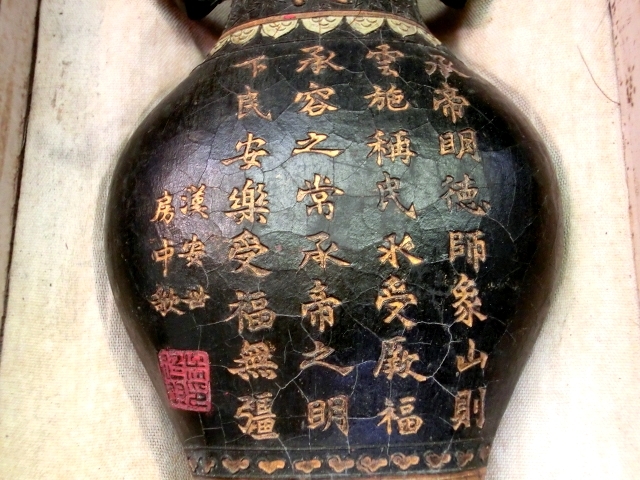 承帝明德師象山則
雲施稱民永受厥福
承容之常承帝之明
下民安樂受福無疆
漢安世
房中歌